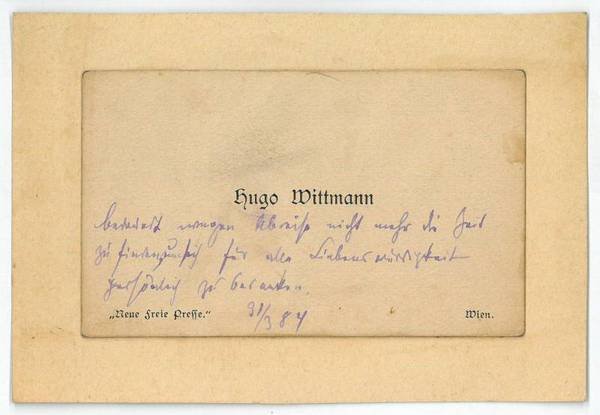 Hugo Wittmann
bedauert wegen Abreise nicht mehr die Zeit
zu finden, um sich für alle Liebenswürdigkeit
persönlich zu bedanken.
31/3 87
„Neue Freie Presse.“ Wien.